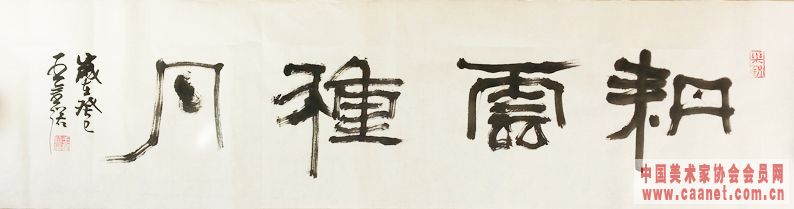 耕雲種月
歲在癸巳
中国美术家协会会员网
www.caanet.com.cn